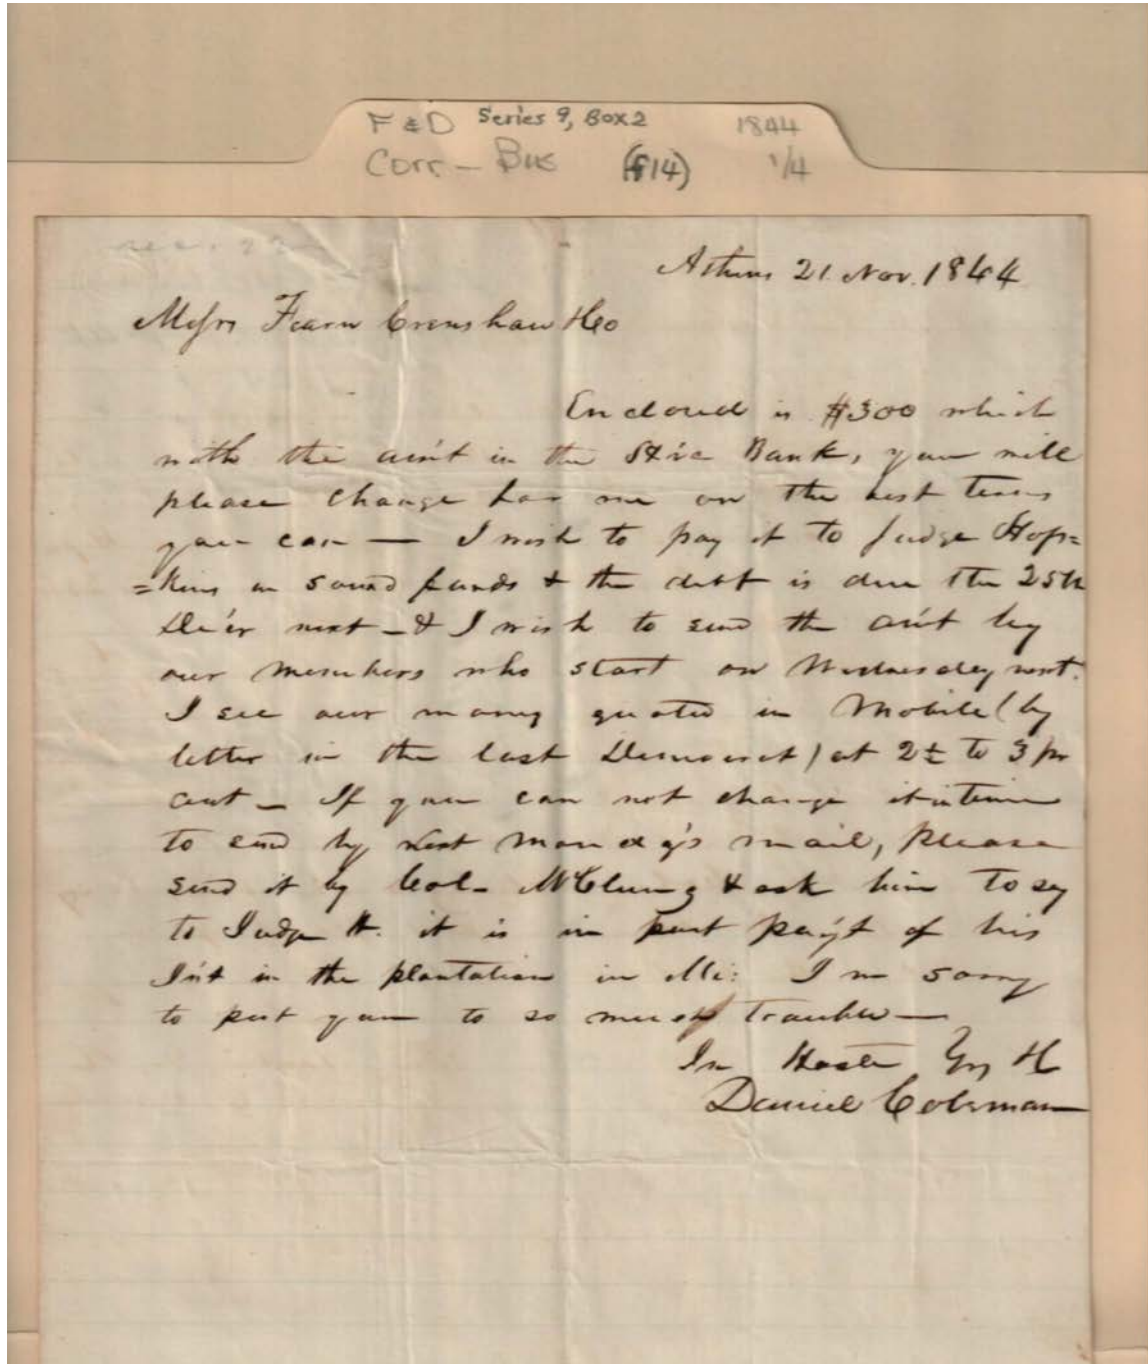 F & D Series 9, Box 2 1844
Corr - Bus (f14) 1/4
Athens 21. Nov. 1844
Messrs Fearn Crenshaw & Co
Enclosed is $300 which
with the am't in the Bank, you will
please change for me on the best terms
you can — I wish to pay it to Judge Hop=
=kins in sound funds & the debt is due the 25th
De'er next - & I wish to send the am't by
our members who start on Wednesday next.
I see our money quoted in Mobile (by
letter in the last Democrat) at 2½ to 3 pr
cent - If you can not change it in time
to send by next Monday's mail, please
send it by Col- McClung & ask him to say
to Judge H. it is in part pay't of his
Int in the plantation in Mi: I'm sorry
to put you to so much trouble —
In Haste Yrs &c
Daniel Coleman